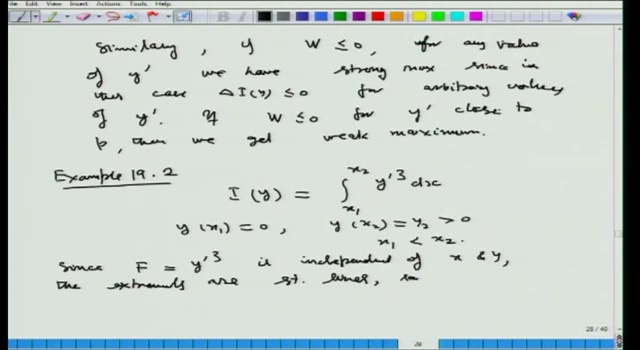 File Edit View Insert Actions Tools Help
Similarly, if W ≤ 0, for any value
of y' we have strong max since in
this case ΔI(y) ≤ 0 for arbitrary values
of y'. If W ≤ 0 for y' close to
p, then we get weak maximum.
Example 19.2
I(y) = ∫_{x₁}^{x₂} y'³ dx
y(x₁) = 0, y(x₂) = y₂ > 0
x₁ < x₂.
Since F = y'³ is independent of x & y,
the extremals are st. lines,
28 / 40
28